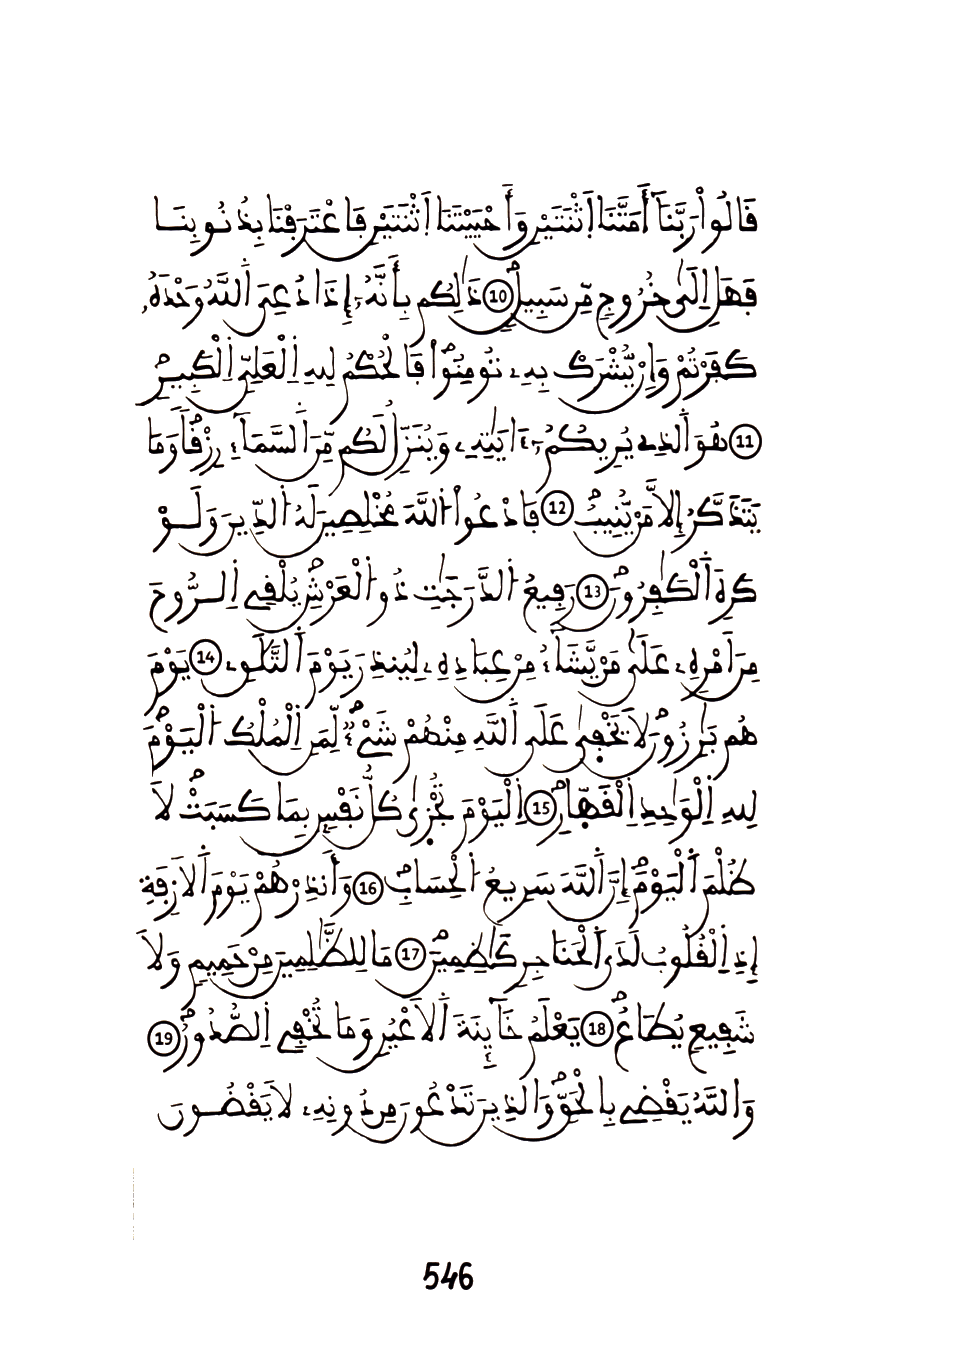 قَالُواْ رَبَّنَآ أَمَتَّنَا اَثْنَتَيْنِ وَأَحْيَيْتَنَا اَثْنَتَيْنِ فَاعْتَرَفْنَا بِذُنُوبِنَا
فَهَلِ اِلَىٰ خُرُوجٖ مِّن سَبِيلٖ 10 ذَٰلِكُم بِأَنَّهُۥٓ إِذَا دُعِيَ اَللَّهُ وَحْدَهُۥ
كَفَرْتُمْ وَإِنْ يُّشْرَكْ بِهِۦ تُومِنُواْ فَالْحُكْمُ لِلهِ اِلْعَلِيِّ اِلْكَبِيرِ
11 هُوَ اَلذِے يُرِيكُمُۥٓ ءَايَٰتِهِۦ وَيُنَزِّلُ لَكُم مِّنَ اَلسَّمَآءِ رِزْقاٗ وَمَا
يَتَذَكَّرُ إِلاَّ مَنْ يُّنِيبُ 12 فَادْعُواْ اَللَّهَ مُخْلِصِينَ لَهُ اَلدِّينَ وَلَوْ
كَرِهَ اَلْكَٰفِرُونَ 13 رَفِيعُ اَلدَّرَجَٰتِ ذُو اَلْعَرْشِ يُلْقِے اِلرُّوحَ
مِنَ اَمْرِهِۦ عَلَىٰ مَنْ يَّشَآءُ مِنْ عِبَادِهِۦ لِيُنذِرَ يَوْمَ اَلتَّلَٰقِۦ 14 يَوْمَ
هُم بَٰرِزُونَ لاَ يَخْفَىٰ عَلَى اَللَّهِ مِنْهُمْ شَےْءٞ لِّمَنِ اِلْمُلْكُ اُلْيَوْمَ
لِلهِ اِلْوَٰحِدِ اِلْقَهّارِ 15 اِلْيَوْمَ تُجْزَىٰ كُلُّ نَفْسِۢ بِمَا كَسَبَتْ لاَ
ظُلْمَ اَلْيَوْمَ إِنَّ اَللَّهَ سَرِيعُ اُلْحِسَابِ 16 وَأَنذِرْهُمْ يَوْمَ اَلاَزِفَةِ
إِذِ اِلْقُلُوبُ لَدَى اَلْحَنَاجِرِ كَٰظِمِينَ 17 مَا لِلظَّٰلِمِينَ مِنْ حَمِيمٖ وَلاَ
شَفِيعٖ يُطَاعُ 18 يَعْلَمُ خَآئِنَةَ اَلاَعْيُنِ وَمَا تُخْفِے اِلصُّدُورُ 19
وَاللَّهُ يَقْضِے بِالْحَقِّ وَالذِينَ تَدْعُونَ مِن دُونِهِۦ لاَ يَقْضُونَ
546